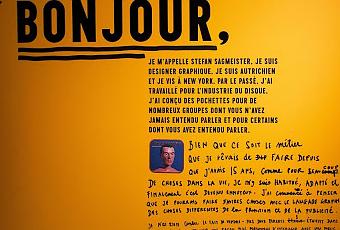 BONJOUR,
JE M'APPELLE STEFAN SAGMEISTER. JE SUIS
DESIGNER GRAPHIQUE. JE SUIS AUTRICHIEN
ET JE VIS À NEW YORK. PAR LE PASSÉ, J'AI
TRAVAILLÉ POUR L'INDUSTRIE DU DISQUE.
J'AI CONÇU DES POCHETTES POUR DE
NOMBREUX GROUPES DONT VOUS N'AVEZ
JAMAIS ENTENDU PARLER ET POUR CERTAINS
DONT VOUS AVEZ ENTENDU PARLER.
BIEN QUE CE SOIT LE MÉTIER
QUE JE RÊVAIS DE FAIRE DEPUIS
QUE J'AVAIS 15 ANS, COMME POUR BEAUCOUP
DE CHOSES DANS LA VIE, JE M'Y SUIS HABITUÉ, ADAPTÉ ET
FINALEMENT C'EST DEVENU J'AI COMMENCÉ À PENSER
QUE JE POURRAIS FAIRE D'AUTRES CHOSES AVEC LE LANGAGE
DES CHOSES DIFFÉRENTES DE LA PROMOTION ET DE LA PUBLICITÉ.